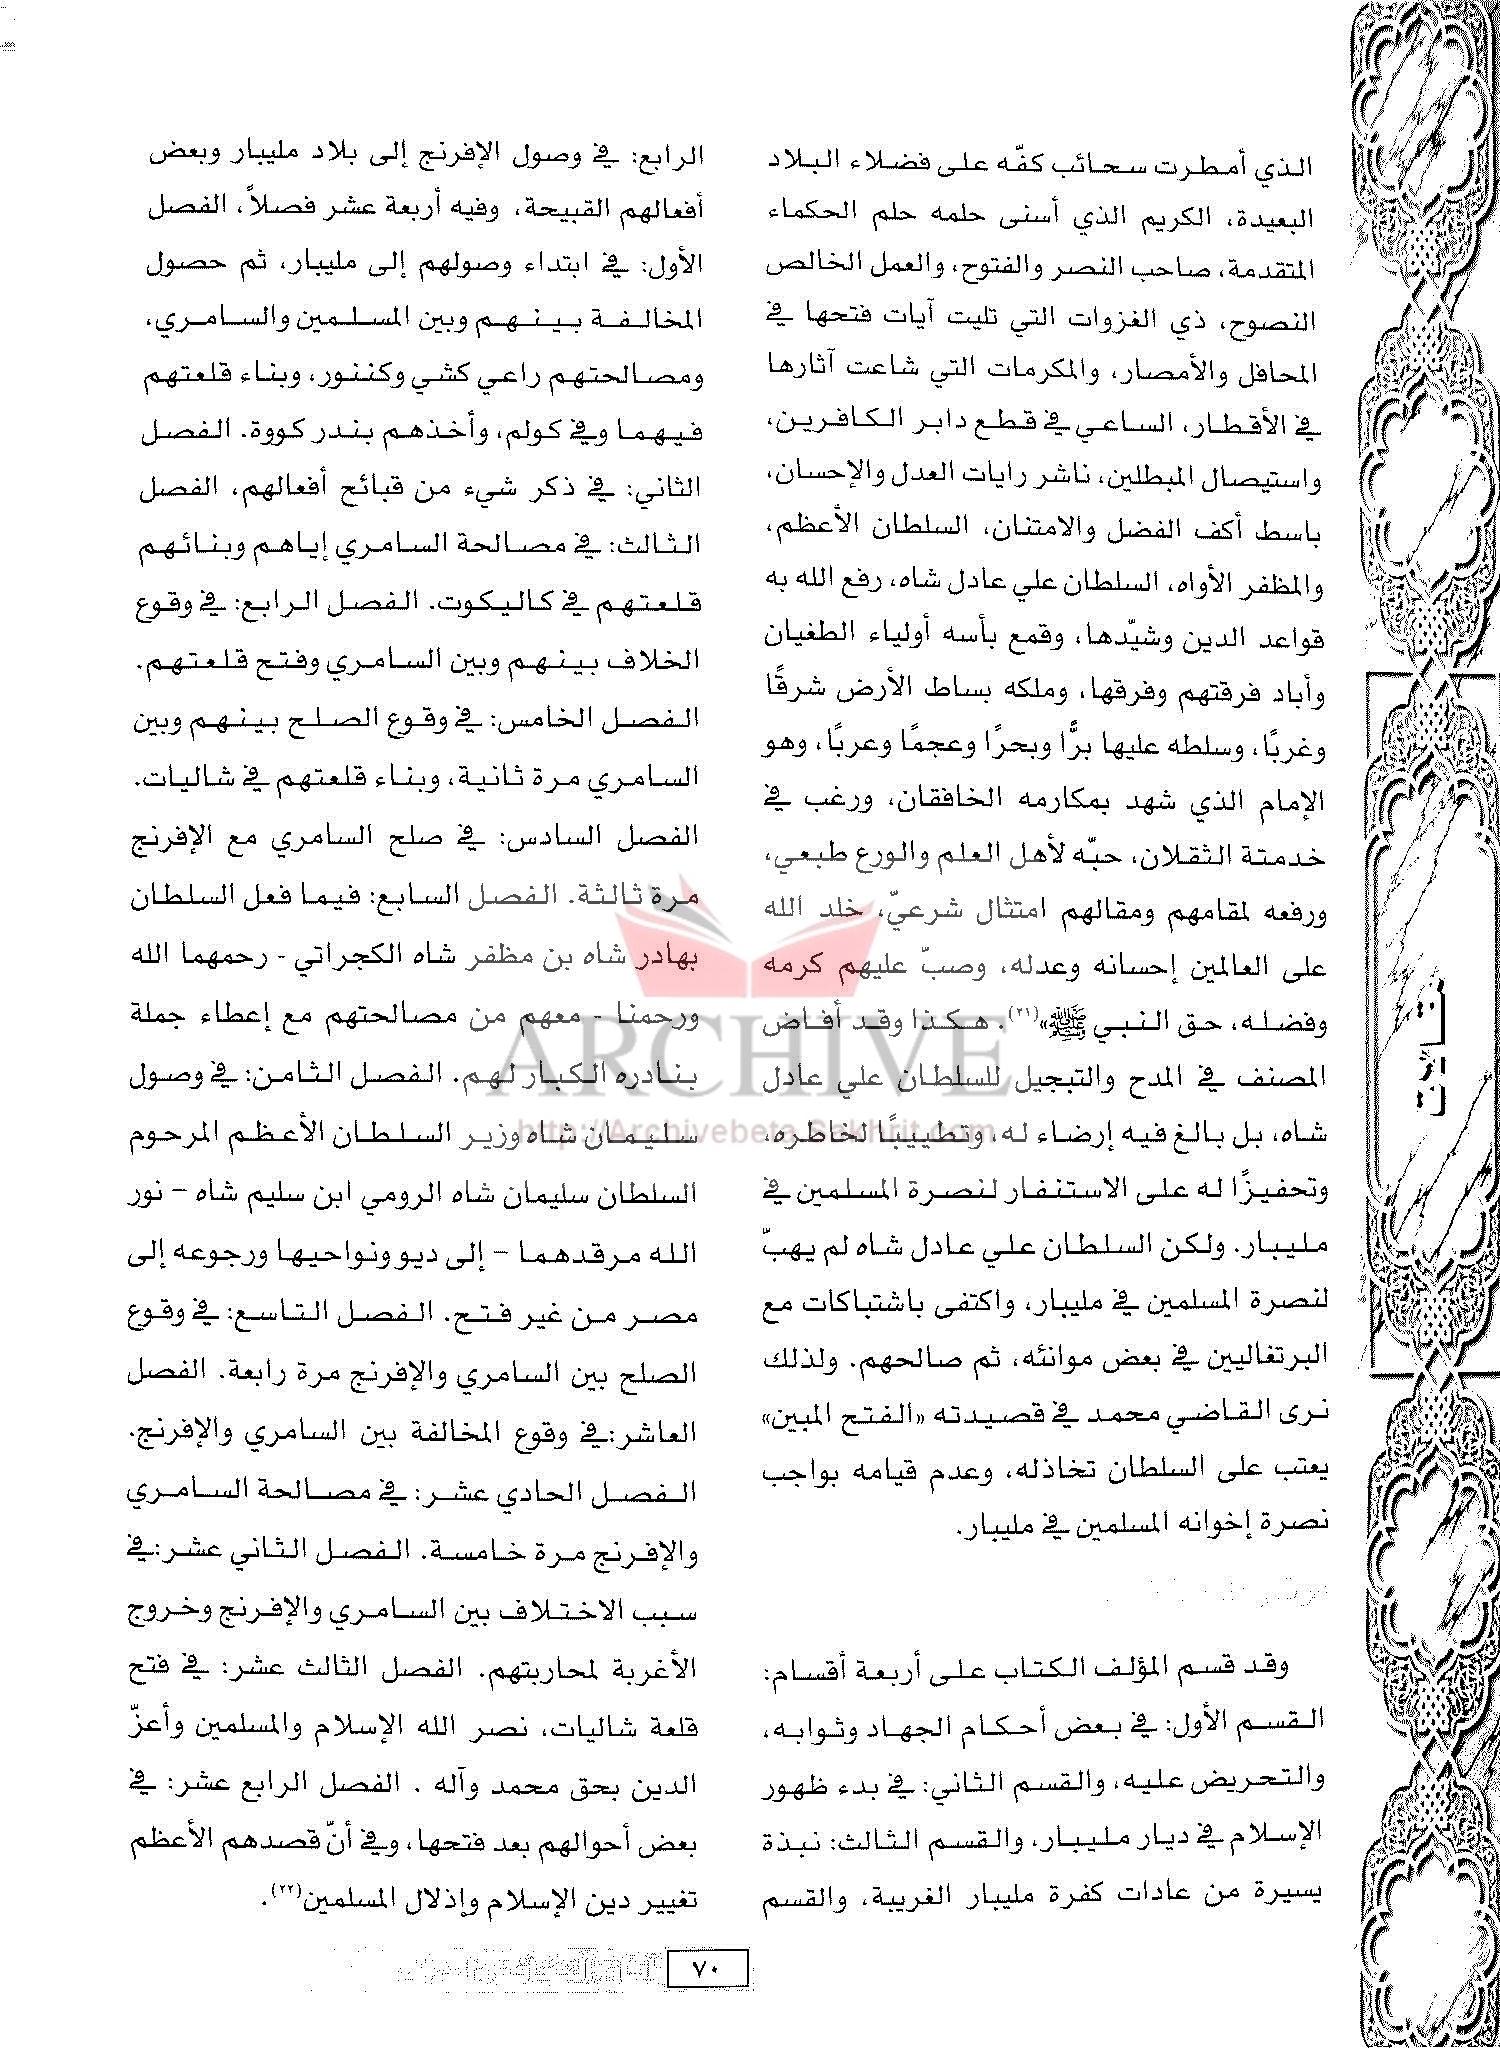 الذي أمطرت سحائب كفّه على فضلاء البلاد
البعيدة، الكريم الذي أسنى حلمه حلم الحكماء
المتقدمة، صاحب النصر والفتوح، والعمل الخالص
النصوح، ذي الغزوات التي تليت آيات فتحها في
المحافل والأمصار، والمكرمات التي شاعت آثارها
في الأقطار، الساعي في قطع دابر الكافرين،
واستيصال المبطلين، ناشر رايات العدل والإحسان،
باسط أكف الفضل والامتنان، السلطان الأعظم،
والمظفر الأواه، السلطان علي عادل شاه، رفع الله به
قواعد الدين وشيّدها، وقمع بأسه أولياء الطغيان
وأباد فرقتهم وفرقها، وملكه بساط الأرض شرقًا
وغربًا، وسلطه عليها برًّا وبحرًا وعجمًا وعربًا، وهو
الإمام الذي شهد بمكارمه الخافقان، ورغب في
خدمتة الثقلان، حبّه لأهل العلم والورع طبعي،
ورفعه لمقامهم ومقالهم امتثال شرعيّ، خلد الله
على العالمين إحسانه وعدله، وصبّ عليهم كرمه
وفضله، حق النبي ﷺ»(٢١). هكذا وقد أفاض
المصنف في المدح والتبجيل للسلطان علي عادل
شاه، بل بالغ فيه إرضاء له، وتطييبًا لخاطره،
وتحفيزًا له على الاستنفار لنصرة المسلمين في
مليبار. ولكن السلطان علي عادل شاه لم يهبّ
لنصرة المسلمين في مليبار، واكتفى باشتباكات مع
البرتغاليين في بعض موانئه، ثم صالحهم. ولذلك
نرى القاضي محمد في قصيدته «الفتح المبين»
يعتب على السلطان تخاذله، وعدم قيامه بواجب
نصرة إخوانه المسلمين في مليبار.
وقد قسم المؤلف الكتاب على أربعة أقسام:
القسم الأول: في بعض أحكام الجهاد وثوابه،
والتحريض عليه، والقسم الثاني: في بدء ظهور
الإسلام في ديار مليبار، والقسم الثالث: نبذة
يسيرة من عادات كفرة مليبار الغريبة، والقسم
الرابع: في وصول الإفرنج إلى بلاد مليبار وبعض
أفعالهم القبيحة، وفيه أربعة عشر فصلاً، الفصل
الأول: في ابتداء وصولهم إلى مليبار، ثم حصول
المخالفة بينهم وبين المسلمين والسامري،
ومصالحتهم راعي كشي وكننور، وبناء قلعتهم
فيهما وفي كولم، وأخذهم بندر كووة. الفصل
الثاني: في ذكر شيء من قبائح أفعالهم، الفصل
الثالث: في مصالحة السامري إياهم وبنائهم
قلعتهم في كاليكوت. الفصل الرابع: في وقوع
الخلاف بينهم وبين السامري وفتح قلعتهم.
الفصل الخامس: في وقوع الصلح بينهم وبين
السامري مرة ثانية، وبناء قلعتهم في شاليات.
الفصل السادس: في صلح السامري مع الإفرنج
مرة ثالثة. الفصل السابع: فيما فعل السلطان
بهادر شاه بن مظفر شاه الكجراتي - رحمهما الله
ورحمنا - معهم من مصالحتهم مع إعطاء جملة
بنادره الكبار لهم. الفصل الثامن: في وصول
سليمان شاه وزير السلطان الأعظم المرحوم
السلطان سليمان شاه الرومي ابن سليم شاه – نور
الله مرقدهما – إلى ديو ونواحيها ورجوعه إلى
مصر من غير فتح. الفصل التاسع: في وقوع
الصلح بين السامري والإفرنج مرة رابعة. الفصل
العاشر:في وقوع المخالفة بين السامري والإفرنج.
الفصل الحادي عشر: في مصالحة السامري
والإفرنج مرة خامسة. الفصل الثاني عشر:في
سبب الاختلاف بين السامري والإفرنج وخروج
الأغربة لمحاربتهم. الفصل الثالث عشر: في فتح
قلعة شاليات، نصر الله الإسلام والمسلمين وأعزّ
الدين بحق محمد وآله . الفصل الرابع عشر: في
بعض أحوالهم بعد فتحها، وفي أنّ قصدهم الأعظم
تغيير دين الإسلام وإذلال المسلمين(٢٢).
ARCHIVE
http://Archivebeta.Sakhrit.com
٧٠